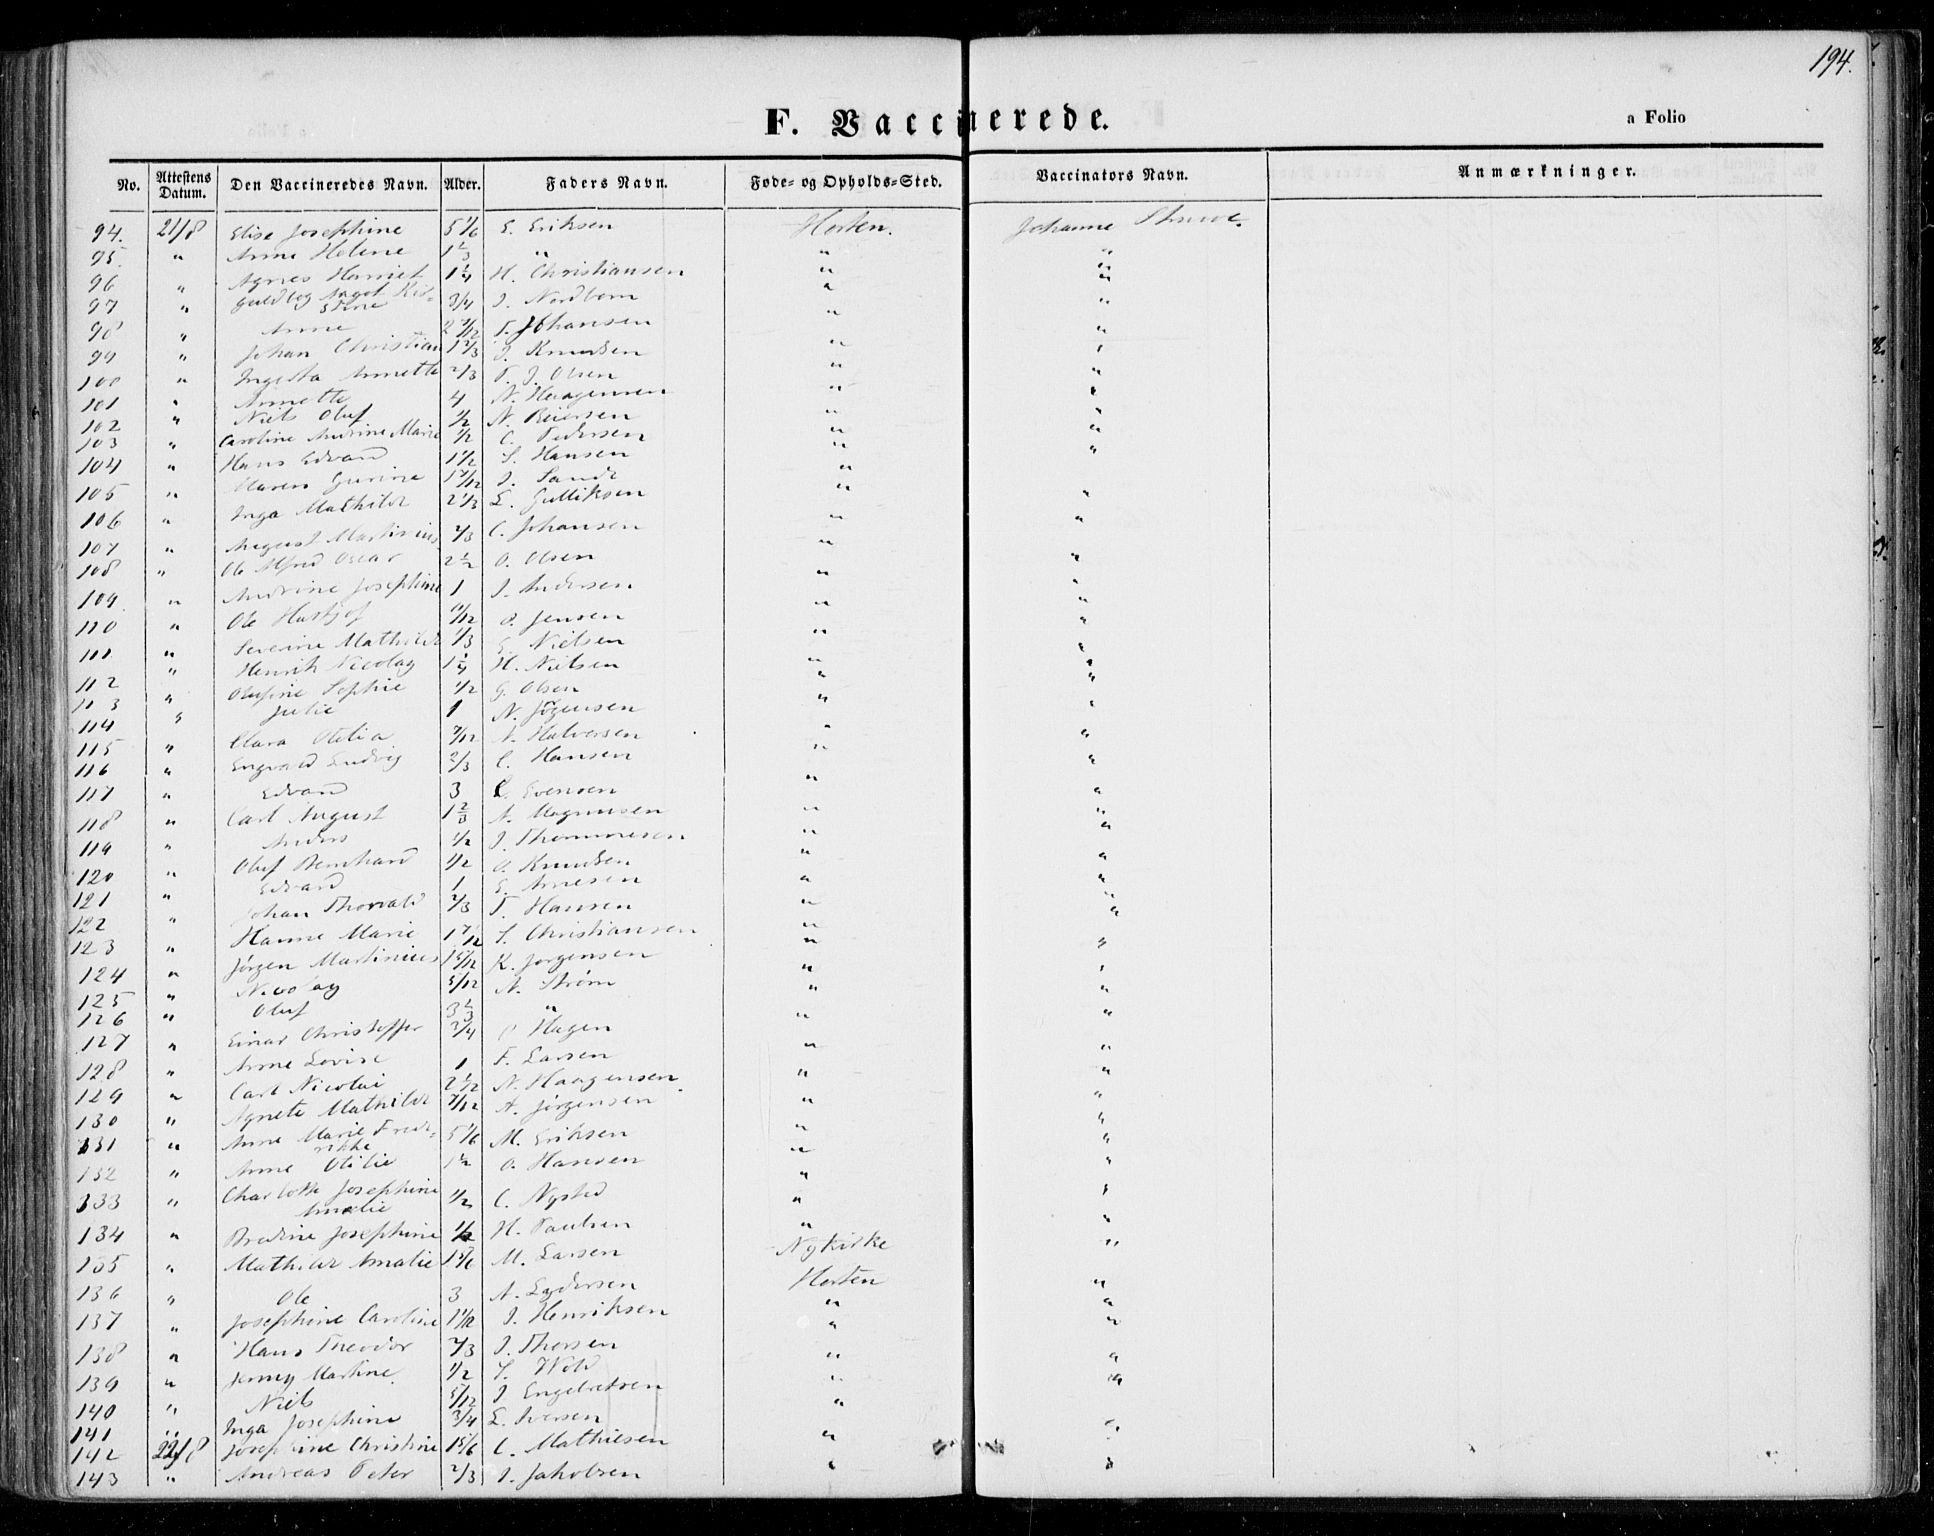 194.
F. Vaccinerede.
a Folio
No. Attestens Datum. Den Vaccineredes Navn. Alder. Faders Navn. Føde- og Opholds-Sted. Vaccinators Navn. Anmærkninger.
94. 21/8 Elise Josephine 5 1/6 E. Eriksen Horten. Johanne
95. " Anne Helene 1 1/3 " " "
96 " Agnes Harriet 1 1/4 H. Christiansen " "
97 " Guldborg Angot Kir-
stine 3/4 J. Nordbom " "
98 " Anne 2 7/12 T. Johansen " "
99 " Johan Christian 1 2/3 J. Knudsen " "
100 " Annette 2/3 T. J. Olsen " "
101 " Annette 4 N. Haagensen " "
102 " Niels Oluf 1/2 N. Reiersen " "
103 " Caroline Andrine Marie 1/2 C. Pedersen " "
104 " Hans Edvard 1 1/2 S. Hansen " "
105 " Maren Gurine 1 7/12 J. Sande "
106 " Inga Mathilde 2 1/3 L. Gulliksen " "
107 " August Martinius 2/3 C. Johansen " "
108 " Ole Alfred Oscar 2 1/2 O. Olsen " "
109 " Andrine Josephine 1 J. Andersen " "
110 " Ole 11/12 O. Jensen " "
111 " Severine Mathilde 1/3 E. Nielsen " "
112 " Henrik Nicolay 1 1/4 H. Nielsen " "
113 " Olufine Sophie 1/2 G. Olsen " "
114 " Julie 1 N. Jörgensen " "
115 " Clara Otilia 7/12 N. Halversen " "
116 " Engvald Ludvig 2/3 C. Hansen " "
117 " Edvard 3 E. Evensen " "
118 " Carl August 1 2/3 N. Magnusen " "
119 " Anders 1/2 J. Thommesen " "
120 " Oluf Bernhard 1/2 O. Knudsen " "
121 " Edvard 1 E. Arnesen " "
122 " Johan Thorvald 2/3 T. Hansen " "
123 " Hanne Marie 1 7/12 S. Christiansen " "
124 " Jörgen Martinius 1 5/12 K. Jorgensen " "
125 " Nicolay 5/12 N. Strøm " "
126 " Oluf 3 1/3 " " "
127 " Einar Christoffer 3/4 Hagen " "
128 " Anne Lovise 1 F. Larsen " "
129 " Carl Nicolai 2 1/2 N. Haagensen " "
130 " Agnete Mathilde 7/12 A. Jörgensen " "
131 " Anne Marie Frede-
rikke 5 1/6 M. Eriksen " "
132 " Anne Otilie 1 1/2 O. Hansen " "
133 " Charlotte Josephine
Amalie 1/2 C. Nysted " "
134 " Josephine 1/2 H. Paulsen " "
135 " Mathilde Amalie 1 5/6 M. Larsen Nykirke "
136 " Ole 3 A. Lydersen Horten "
137 " Josephine Caroline 1 1/12 J. Henriksen " "
138 " Hans Theodor 2/3 J. Thorsen " "
139 " Jenny Martine 1/2 S. Wold " "
140 " Niels 5/12 J. Engebretsen " "
141 " Inga Josephine 3/4 L. Iversen "
142 22/8 Josephine Christine 1 5/6 C. Mathiesen " "
143 " Andreas Peter 2/3 J. Jakobsen " "